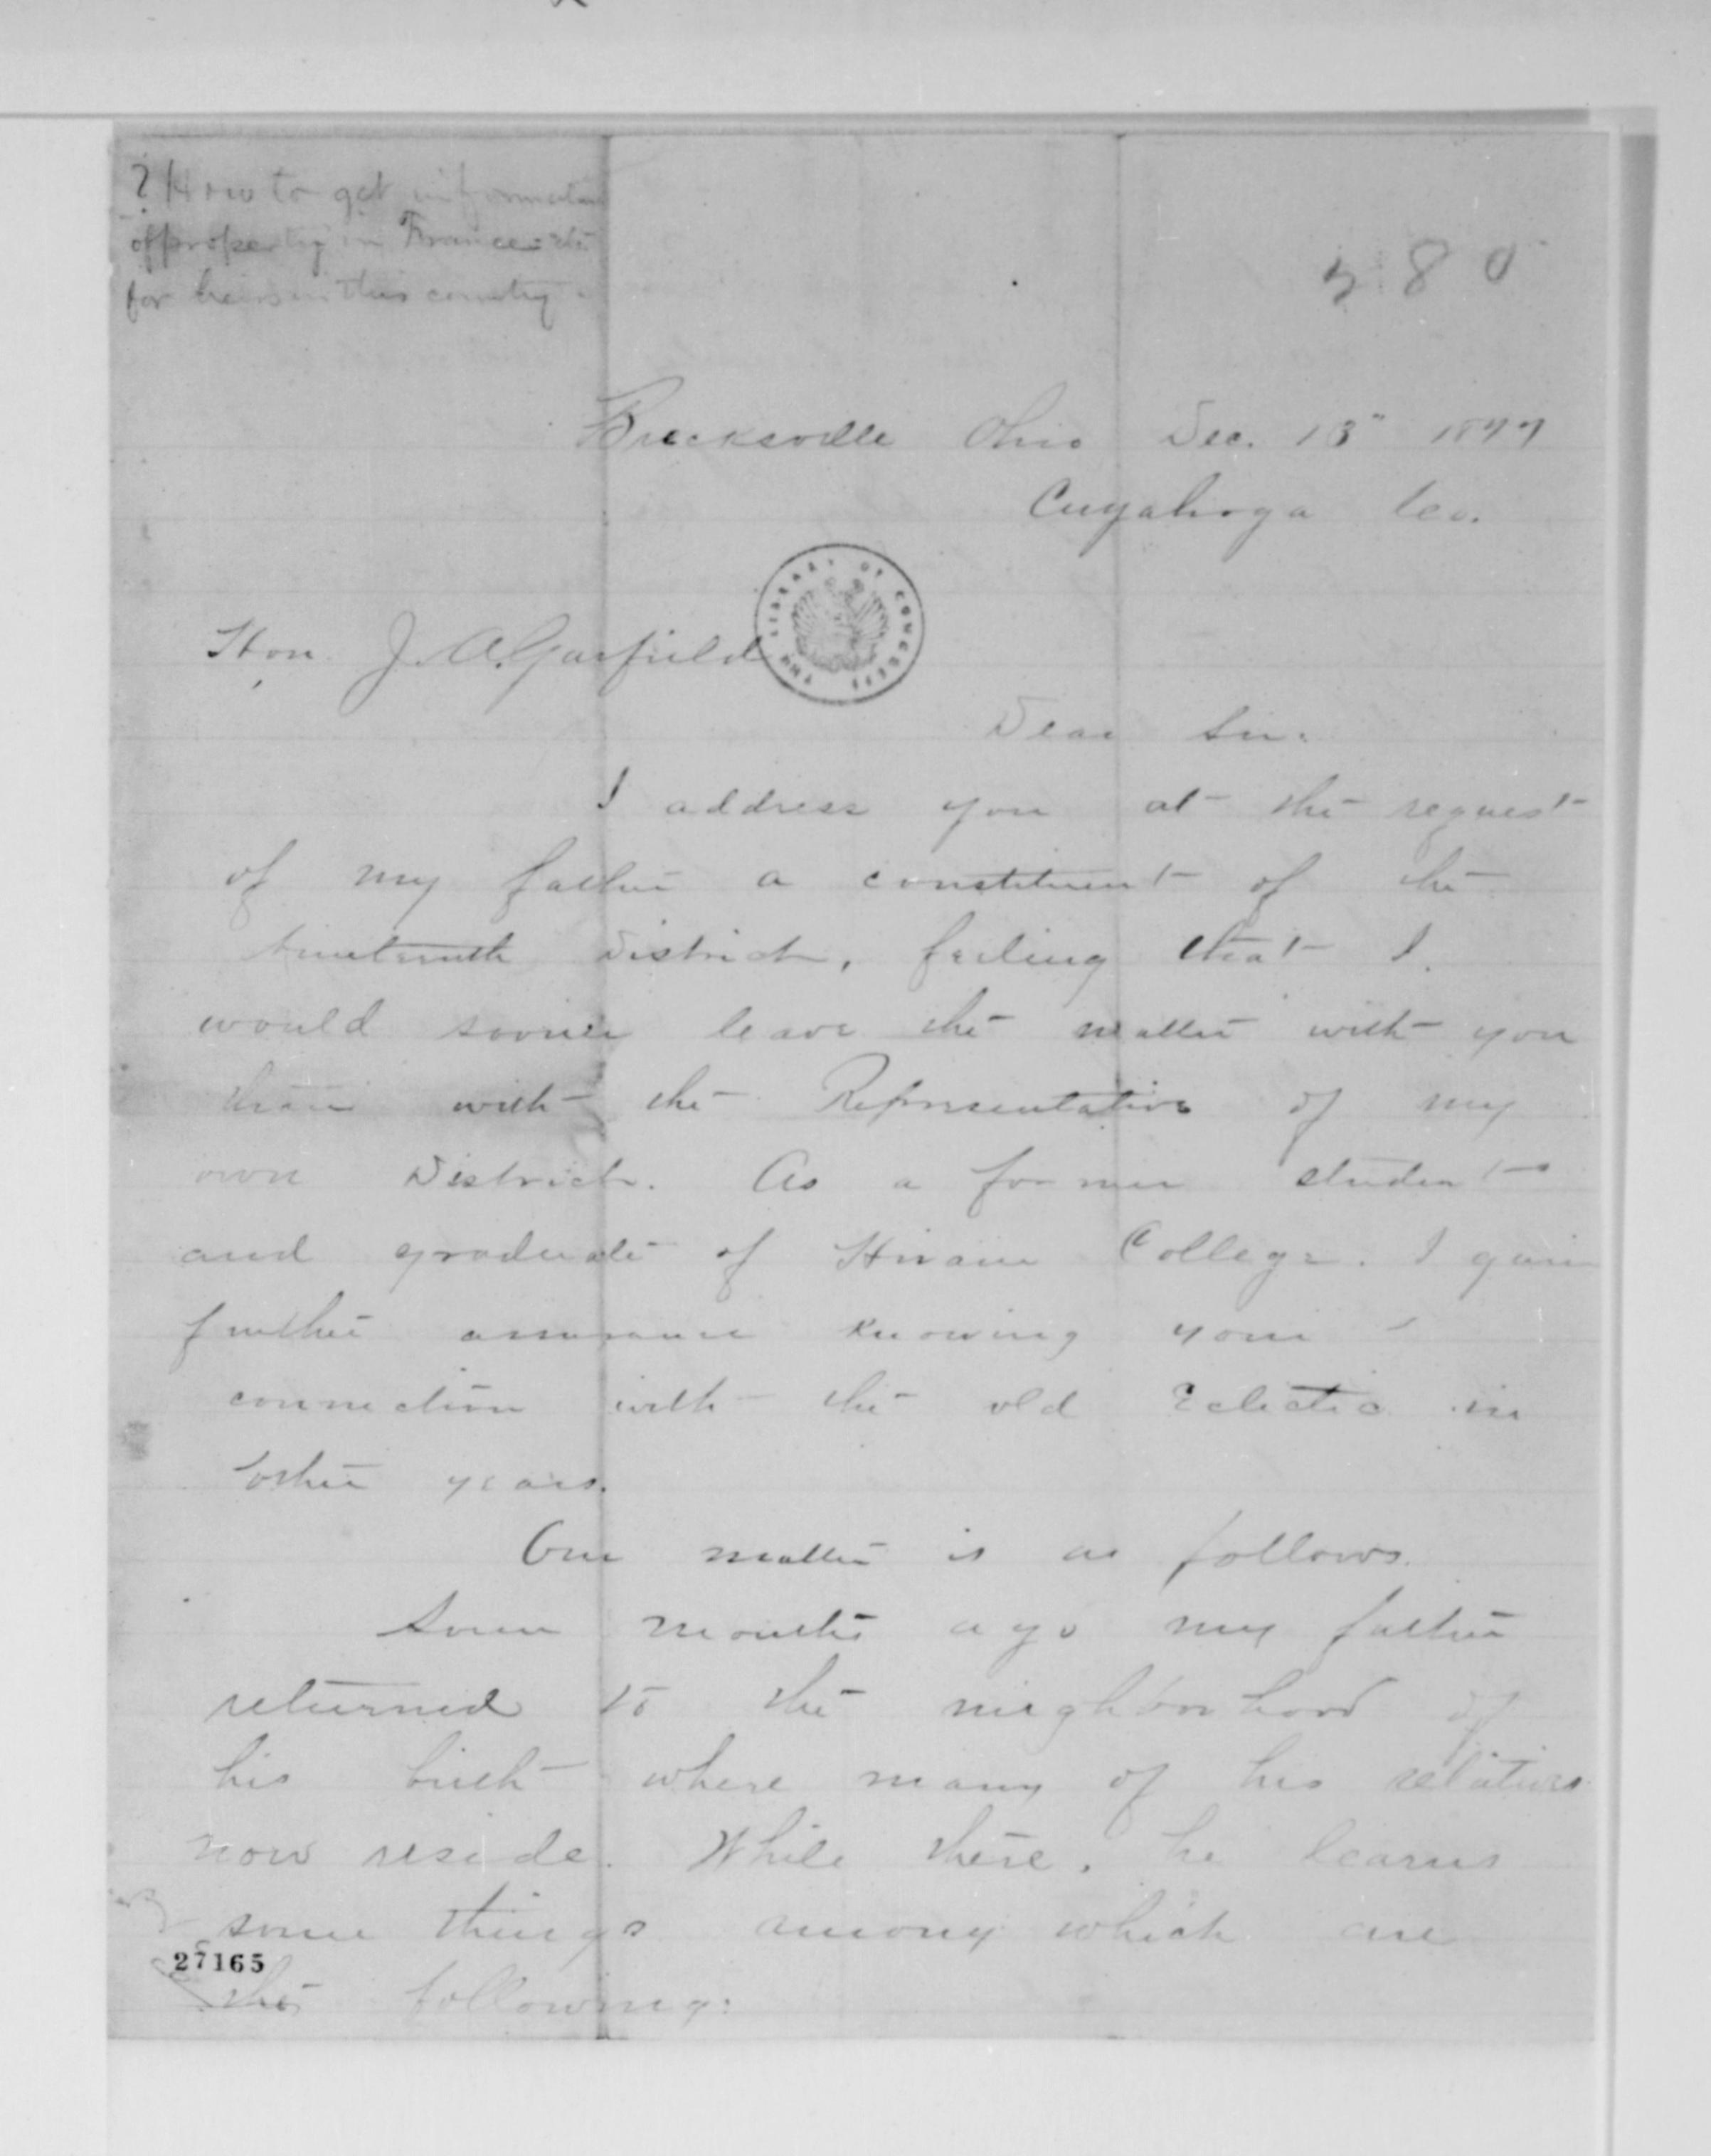 ? How to get information
of property in France etc
for heirs in this country.
Brecksville Ohio Dec. 13" 1877
Cuyahoga Co.
THE LIBRARY OF CONGRESS
Hon. J. A. Garfield
Dear Sir:
I address you at the request
of my father a constituent of the
Nineteenth District, feeling that I
would sooner leave the matter with you
than with the Representative of my
own District. As a former student
and graduate of Hiram College. I gain
further assurance knowing your
connection with the old Eclectic in
other years.
Our matter is as follows.
Some months ago my father
returned to the neighborhood of
his birth where many of his relatives
now reside. While there, he learns
some things among which are
27165
the following: